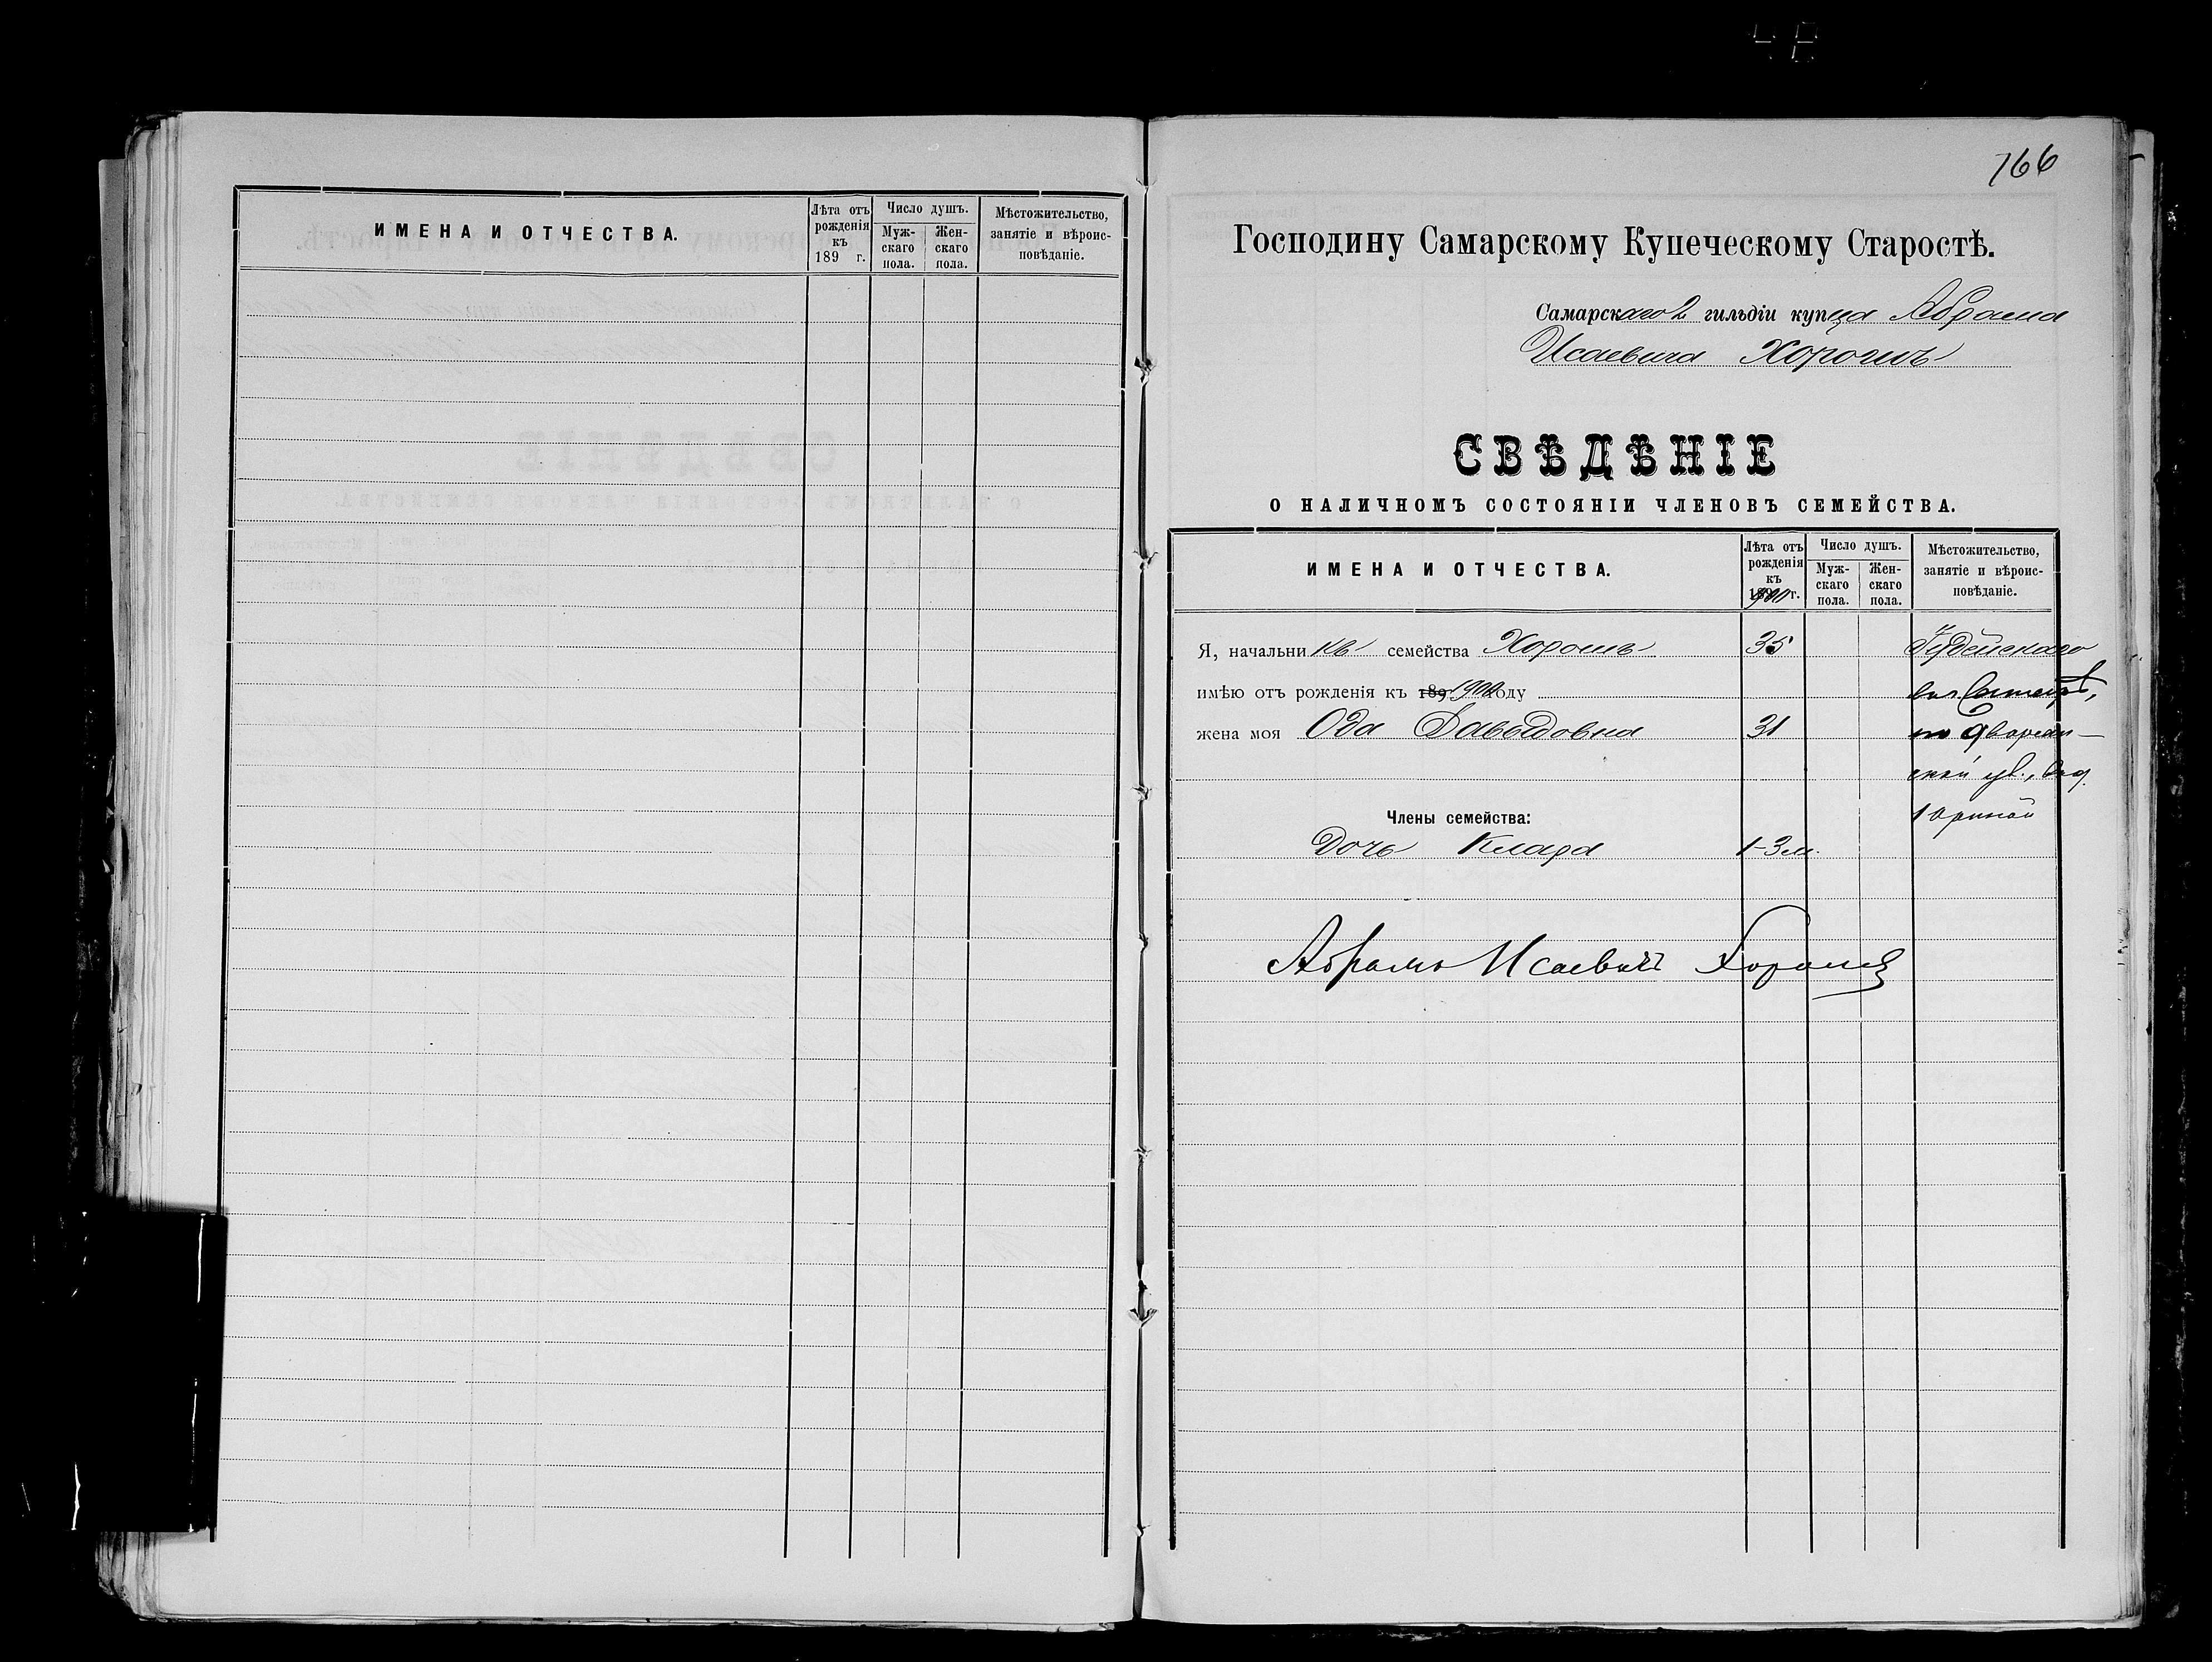 ИМЕНА И ОТЧЕСТВА.
Лѣта отъ рожденія къ 189 г.
Число душъ.
Муж-скаго пола.
Жен-скаго пола.
Мѣстожительство, занятіе и вѣроис-повѣданіе.
166
Господину Самарскому Купеческому Старостѣ.
Самарскаго 2 гильдіи купца Абрама
Исаевича Хорошъ
СВѢДѢНІЕ
О НАЛИЧНОМЪ СОСТОЯНІИ ЧЛЕНОВЪ СЕМЕЙСТВА.
ИМЕНА И ОТЧЕСТВА.
Лѣта отъ рожденія къ 1900 г.
Число душъ.
Муж-скаго пола.
Жен-скаго пола.
Мѣстожительство, занятіе и вѣроис-повѣданіе.
Я, начальникъ семейства Хорошъ 35 Іудейскаго
имѣю отъ рожденія къ 1900 году
жена моя Ода Давыдовна 31 по Дворян-
ской ул.,
Члены семейства:
Дочь Клара 1-3 м.
Абрамъ Исаевичъ Хорошъ